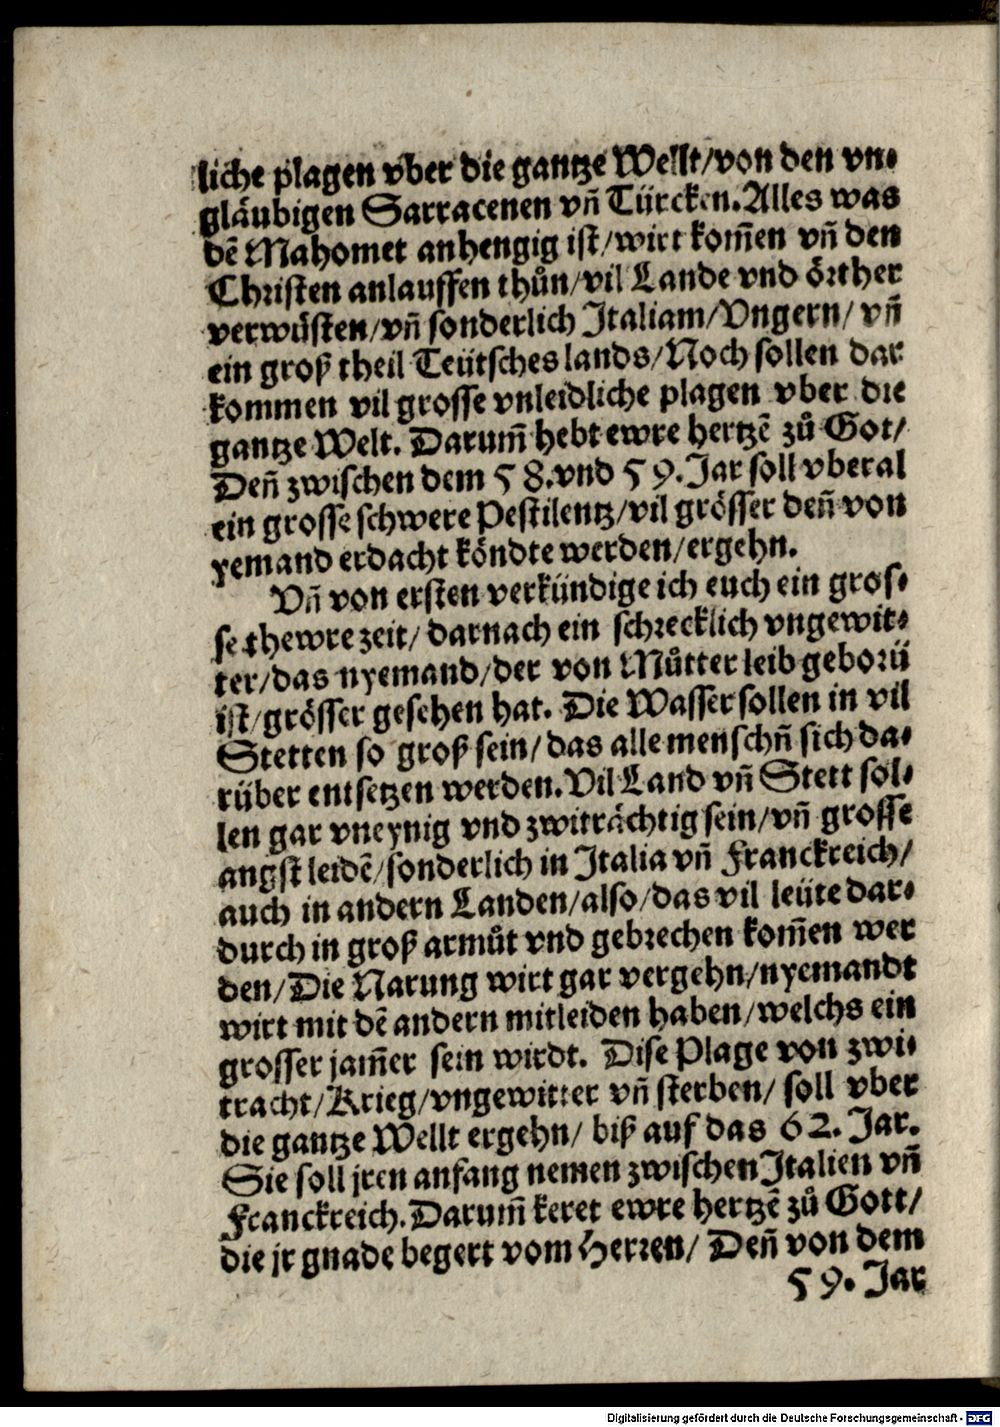 liche plagen vber die gantze Wellt/von den vn-
gläubigen Sarracenen vñ Türcken. Alles was
dẽ Mahomet anhengig ist/wirt kom̃en vñ den
Christen anlauffen thůn/vil Lande vnd örther
verwüsten/vñ sonderlich Italiam/Vngern/ vñ
ein groß theil Teütsches lands/Noch sollen dar
kommen vil grosse vnleidliche plagen vber die
gantze Welt. Darum̃ hebt ewre hertzẽ zů Got/
Deñ zwischen dem 58. vnd 59. Jar soll vberal
ein grosse schwere Pestilentz/vil grösser deñ von
yemand erdacht köndte werden/ergehn.
Vñ von ersten verkündige ich euch ein gros-
se thewre zeit/ darnach ein schrecklich vngewit-
ter/das nyemand/der von Můtter leib geborñ
ist/grösser gesehen hat. Die Wasser sollen in vil
Stetten so groß sein/das alle menschñ sich da-
rüber entsetzen werden. Vil Land vñ Stett sol-
len gar vneynig vnd zwiträchtig sein/vñ grosse
angst leidẽ/sonderlich in Italia vñ Franckreich/
auch in andern Landen/also/das vil leüte dar-
durch in groß armůt vnd gebrechen kom̃en wer
den/Die Narung wirt gar vergehn/nyemandt
wirt mit dẽ andern mitleiden haben/welchs ein
grosser jam̃er sein wirdt. Dise Plage von zwi-
tracht/Krieg/vngewitter vñ sterben/ soll vber
die gantze Wellt ergehn/ biß auf das 62. Jar.
Sie soll jren anfang nemen zwischen Italien vñ
Franckreich. Darum̃ keret ewre hertzẽ zů Gott/
die jr gnade begert vom Herren/ Deñ von dem
59. Jar
Digitalisierung gefördert durch die Deutsche Forschungsgemeinschaft - DFG